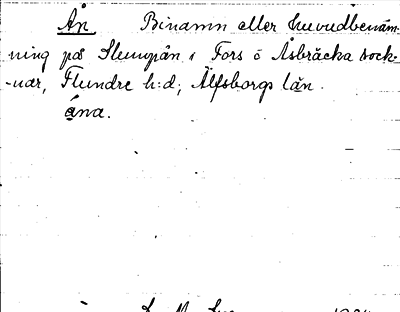 Ån Binamn eller huvudbenäm-
ning på Slumpån i Fors o Åsbräcka sock-
-nar, Flundre h:d; Älfsborgs län.
ána.